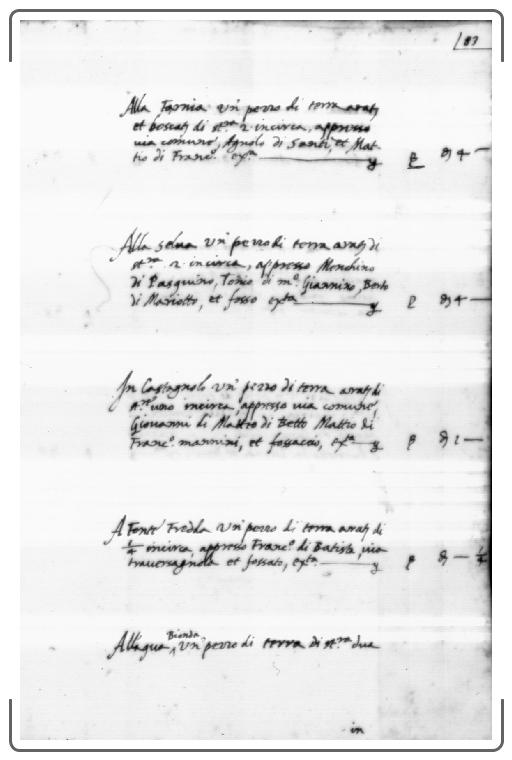 83
Alla Fornia un' pezzo di terra arat.
et boscat. di st.ra 2 incirca, appresso
via comune, Agnolo di Santi, et Mat-
tio di Franc.o ex.ta
Alla selva un' pezzo di terra arat. di
st.ra 2 incirca, appresso Menchino
di Pasquino, Tonio di m.o Giannino, Berto
di Mariotto, et fosso ex.ta
In Castagnolo un' pezzo di terra arat. di
st.ro uno incirca, appresso via comune,
Giovanni di Matteo di Betto Matteo di
Franc.o mannini, et fossaccio, ex.ta
A Fonte Fredda un' pezzo di terra arat. di
1/4 incirca, appresso Franc.o di Batista, via
traversagnola et fossato, ex.ta
All'aqua Bionda un' pezzo di terra di st.ra dua
in